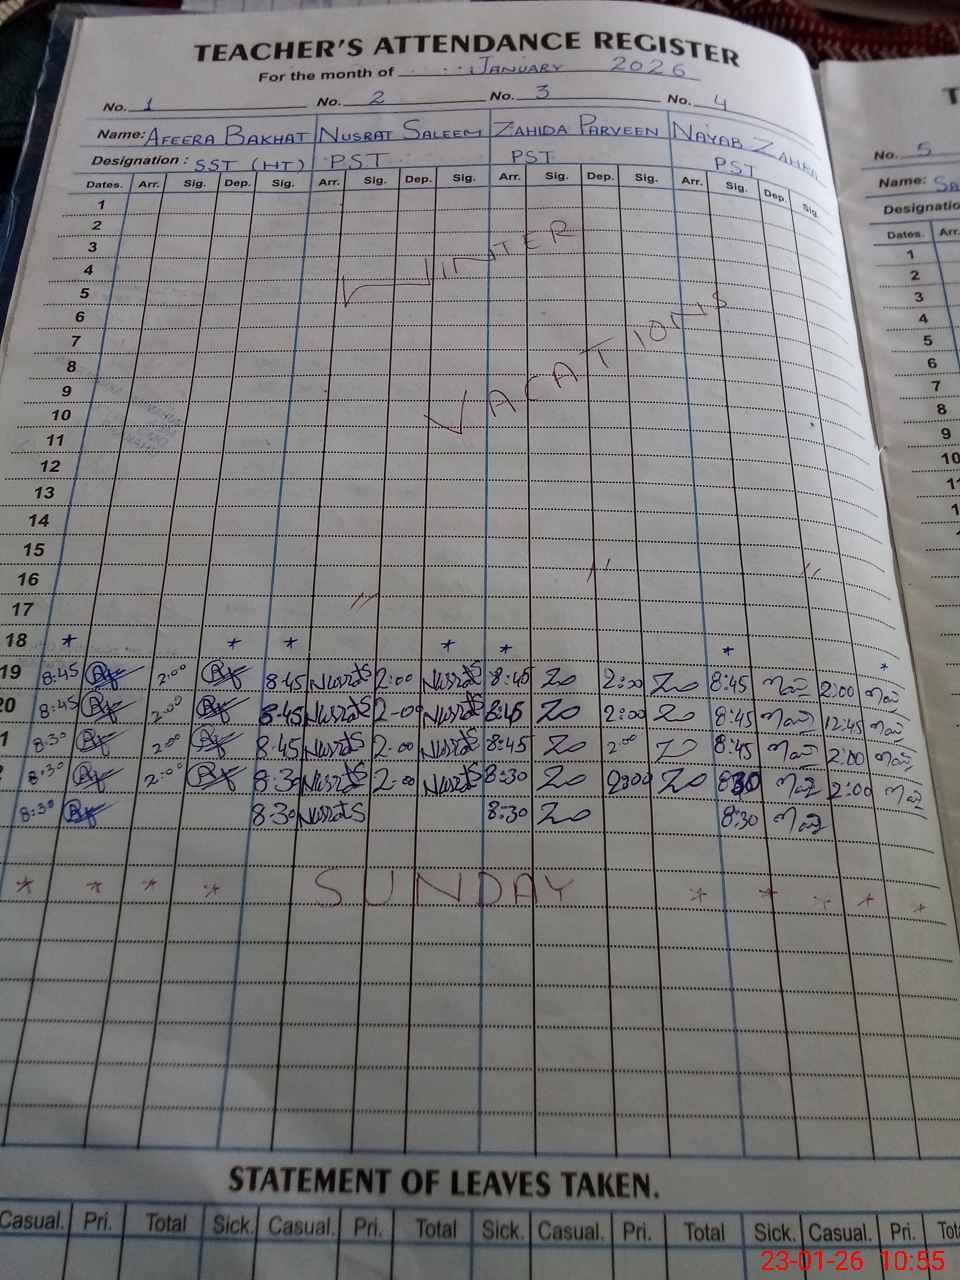 TEACHER'S ATTENDANCE REGISTER
For the month of January 2026
No. 1 No. 2 No. 3 No. 4
Name: AFEERA BAKHAT NUSRAT SALEEM ZAHIDA PARVEEN NAYAB ZAHRA
Designation : SST (HT) PST PST PST
Dates. Arr. Sig. Dep. Sig. Arr. Sig. Dep. Sig. Arr. Sig. Dep. Sig. Arr. Sig. Dep. Sig.
1
2
3
4
5
6
7
8
9
10
11
12
13
14
15
16
17
WINTER
VACATIONS
" " "
18 * * * * * * *
19 8:45 2:00 8:45 Nusrat S 2:00 Nusrat S 8:45 2:00 8:45 2:00
20 8:45 2:00 8:45 Nusrat S 2-00 Nusrat S 8:45 2:00 8:45 12:45
1 8:30 2:00 8.45 Nusrat S 2:00 Nusrat S 8:45 2:00 8:45 2:00
2 8:30 2:00 8:30 Nusrat S 2:00 Nusrat S 8:30 2:00 8:30 2:00
8:30 8:30 Nusrat S 8:30 8:30
* * * * SUNDAY * * * * *
STATEMENT OF LEAVES TAKEN.
Casual. Pri. Total Sick. Casual. Pri. Total Sick. Casual. Pri. Total Sick. Casual. Pri. Tot
T
No. 5
Name: Sa
Designatio
Dates. Arr.
1
2
3
4
5
6
7
8
9
10
11
23-01-26 10:55